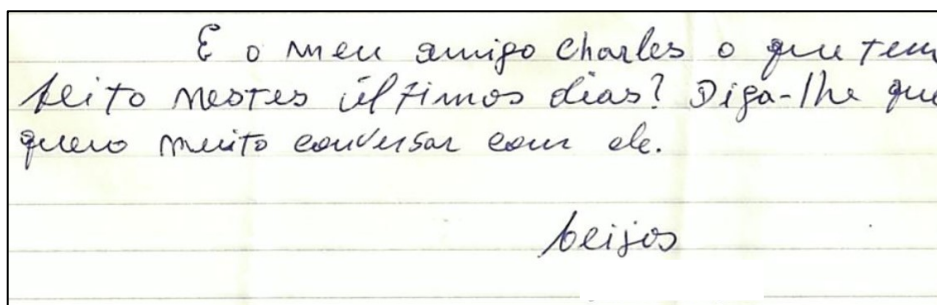 E o meu amigo Charles o que tem
feito nestes últimos dias? Diga-lhe que
quero muito conversar com ele.
beijos